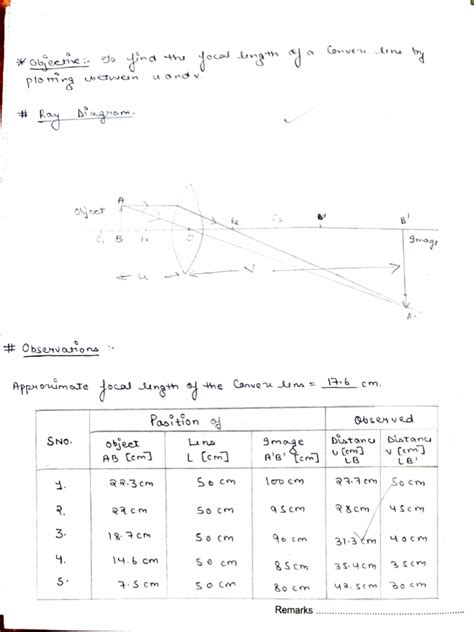 * Objective:- To find the focal length of a Convex lens by
plotting between u and v
# Ray Diagram.
A
Object
B'
C₁ B F₁ O F₂ C₂
Image
u V
A'
# Observations :-
Approximate focal length of the Convex lens = 17.6 cm.
SNO. Position of Observed
Object AB [cm] Lens L [cm] Image A'B' [cm] Distance u [cm] LB Distance v [cm] LB'
1. 22.3 cm 50 cm 100 cm 27.7 cm 50 cm
2. 22 cm 50 cm 95 cm 28 cm 45 cm
3. 18.7 cm 50 cm 90 cm 31.3 cm 40 cm
4. 14.6 cm 50 cm 85 cm 35.4 cm 35 cm
5. 7.5 cm 50 cm 80 cm 42.5 cm 30 cm
Remarks